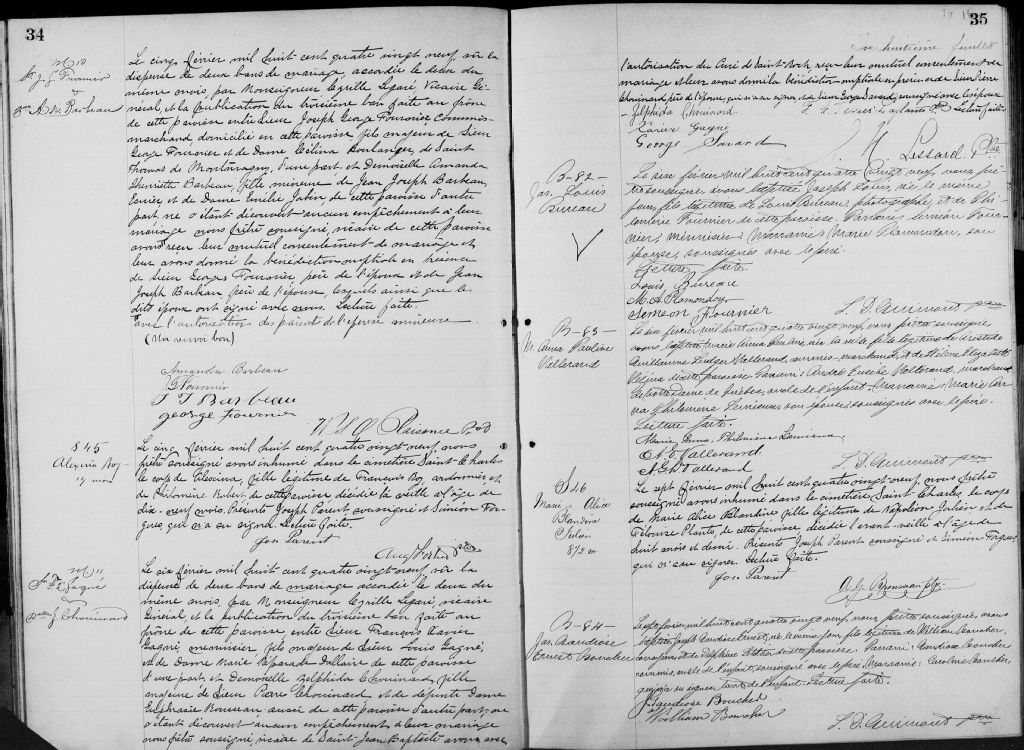 34
M 10
Sr J. G. Fournier
&
Dlle A. Hte Barbeau
Le cinq février mil huit cent quatre vingt neuf, vû la
dispense de deux bans de mariage, accordée le deux du
même mois, par Monseigneur Cyrille Légaré Vicaire Gé-
néral, et la publication du troisième ban faite au prône
de cette paroisse entre Sieur Joseph George Fournier Commis-
marchand, domicilié en cette paroisse fils majeur de Sieur
George Fournier et de Dame Célina Boulanger, de Saint
Thomas de Montmagny, d'une part, et Demoiselle Amanda
Henriette Barbeau, fille mineure de Jean Joseph Barbeau,
et de Dame Emélie Jobin de cette paroisse d'autre
part ne s'étant découvert aucun empêchement à leur
mariage nous prêtre soussigné, vicaire de cette paroisse
avons reçu leur mutuel consentement de mariage et
leur avons donné la bénédiction nuptiale en présence
de Sieur Georges Fournier père de l'époux et de Jean
Joseph Barbeau, père de l'épouse, lesquels ainsi que les
dits époux ont signé avec nous. Lecture faite.
avec l'autorisation des parent de l'épouse mineure
(Un renvoi bon)
Amanda Barbeau
J G Fournier
J J Barbeau
george fournier
Plaisance
845
Alexina Roy
19 mois
Le cinq février mil huit cent quatre vingt-neuf, nous
prêtre soussigné avons inhumé dans le cimetière Saint-Charles
le corps de Alexina, fille légitime de François Roy, cordonnier et
de Philomène Robert, de cette paroisse, décédée la veille à l'âge de
dix-neuf mois. Présents Joseph Parent soussigné et Siméon For-
gues, qui n'a su signer. Lecture faite.
Jos Parent
M 11
Sr F. X. Gagné
&
Dlle Z. Chouinard
Le six février mil huit cent quatre vingt-neuf vû la
dispense de deux bans de mariage accordée le deux du
même mois, par Monseigneur Cyrille Légaré, vicaire
Général, et la publication du troisième ban faite au
prône de cette paroisse entre Sieur François Xavier
Gagné, menuisier, fils majeur de Sieur Louis Gagné,
et de Dame Marie Réparade Dallaire de cette paroisse
d'une part et Demoiselle Zelphida Chouinard fille
majeure de Sieur Pierre Chouinard et de défunte Dame
Euphrasie Rousseau, aussi de cette paroisse d'autre part, ne
s'étant découvert aucun empêchement à leur mariage
nous prêtre soussigné, vicaire de Saint-Jean Baptiste avons avec
35
huitième feuillet
l'autorisation du Curé de Saint-Roch reçu leur mutuel consentement de
mariage et leur avons donné la bénédiction nuptiale en présence de Sieur Pierre
Chouinard père de l'épouse, qui n'a su signer, et de Sieur George Savard, soussigné avec les époux.
Zelphida Chouinard Lecture faite
Xavier Gagné
George Savard
Lessard Ptre
B-82-
Jos. Louis
Bureau
Le six février mil huit cent quatre vingt neuf, nous prê-
tre soussigné avons baptisé Joseph Louis, né le même
jour, fils légitime de Louis Bureau, photographe, et de Phi-
lomène Fournier de cette paroisse. Parrain: Siméon Four-
nier, menuisier; Marraine: Marie Plamondon, son
épouse, soussignés avec le père.
Lecture faite.
Louis Bureau
M. A Plamondon
Simeon Fournier
L. D. Guimont ptre
B-83-
M. Anna Pauline
Vallerand
Le six février mil huit cent quatre vingt neuf, nous prêtre soussigné
avons baptisé Marie Anna Pauline, née la veille, fille légitime de Aristide
Guillaume Rodger Vallerand, commis-marchand, et de Hélène Elizabeth
de cette paroisse. Parrain: André Eusèbe Vallerand, marchand
de Notre Dame de Québec, oncle de l'enfant. Marraine: Marie An-
na Philomène Lemieux, son épouse, soussignés avec le père.
Lecture faite.
Marie Anna Philomène Lemieux
A. E. Vallerand
A. G. R. Vallerand
L. D. Guimont ptre
S 46
Marie Alice
Blandine
Julien
8 1/2 m.
Le sept février mil huit cent quatre vingt-neuf, nous prêtre
soussigné avons inhumé dans le cimetière Saint Charles, le corps
de Marie Alice Blandine fille légitime de Napoléon Julien et de
Plante, de cette paroisse, décédée l'avant-veille à l'âge de
huit mois et demi. Présents Joseph Parent soussigné et Siméon Forgues
qui n'a su signer. Lecture faite.
Jos Parent
Brousseau ptre
B-84-
Jos. Gaudiose
Ernest Boucher
Le sept février mil huit cent quatre vingt neuf, nous prêtre soussigné, avons
baptisé Joseph Gaudiose Ernest, né le même jour, fils légitime de William Boucher,
et de Delphine de cette paroisse. Parrain: Gaudiose Boucher
oncle de l'enfant, soussigné avec le père. Marraine: Caroline Boucher,
qui n'a su signer, tante de l'enfant. Lecture faite.
J. Gaudiose Boucher
William Boucher
L. D. Guimont ptre